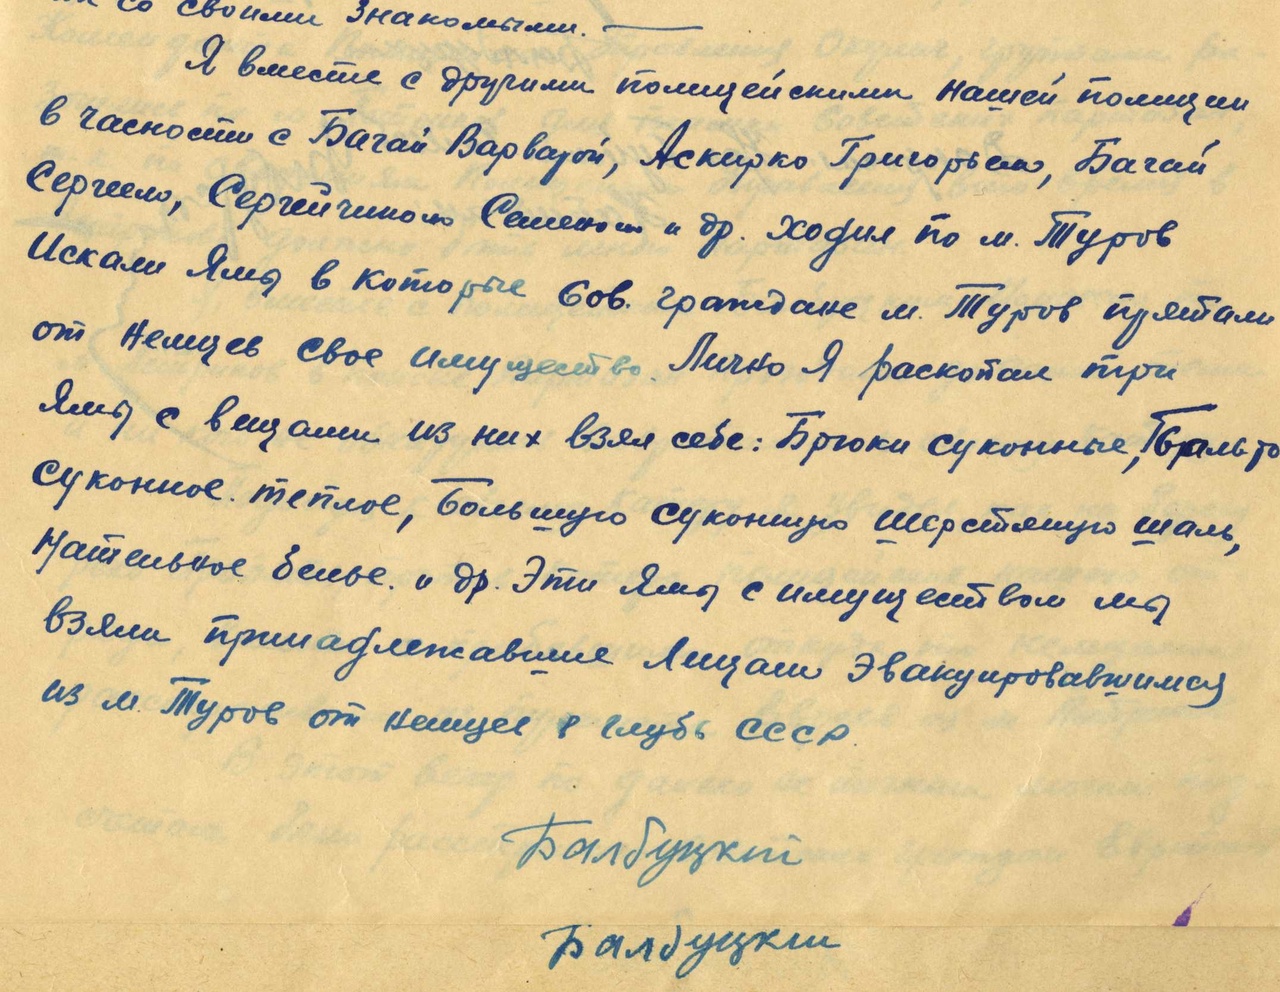 со своими знакомыми.
Я вместе с другими полицейскими нашей полиции
в часности с Бачай Варварой, Аскирко Григорьем, Бачай
Сергием, Сергейчиком Семеном и др. ходил по м. Туров
Искали Ямы в которые Сов. граждане м. Туров прятали
от немцев свое имущество. Лично Я раскопал три
Ямы с вещами из них взял себе: Брюки суконные, Пальто
суконное теплое, Большую суконную шерстяную шаль,
Нательное белье. и др. Эти Ямы с имуществом мы
взяли принадлежавшие Лицам Эвакуировавшимся
из м. Туров от немцев в глубь СССР
Балбуцкий
Балбуцкий